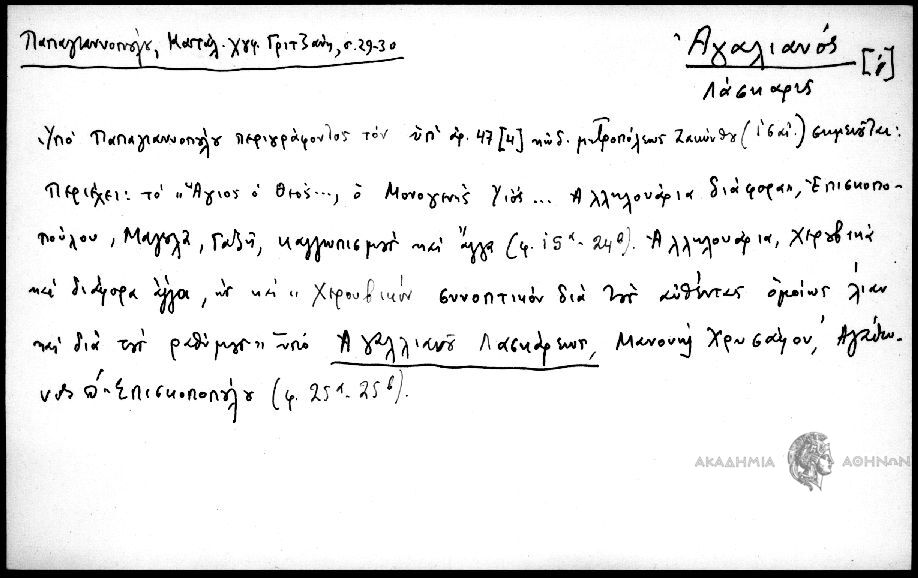 Παπαγιαννοπούλου, Καταλ. χφφ. Γριτζάνη, σ. 29-30
Ἀγαλιανός
Λάσκαρις
Ὑπὸ Παπαγιαννοπούλου περιγράφοντος τὸν ὑπ' ἀρ. 47 [4] κώδ. μητροπόλεως Ζακύνθου σημειοῦται:
Περιέχει: τὸ "Ἅγιος ὁ Θεός..., ὁ Μονογενὴς Υἱός... Ἀλληλουάρια διάφορα", Ἐπισκοπο-
πούλου, Μαγουλᾶ, Γαζῆ, Καλλωπισμοῦ καὶ ἄλλα (φ. 15α - 24β). Ἀλληλουάρια, Χερουβικὰ
καὶ διάφορα ἄλλα, ὡς καὶ "Χερουβικὸν συνοπτικὸν διὰ τοὺς αὐθέντας ὁμοίως λίαν
καὶ διὰ τοὺς ραθύμους" ὑπὸ Ἀγαλλιανοῦ Λασκάρεως, Μανουὴλ Χρυσάφου, Ἀγάθω-
νος Ἐπισκοποπούλου (φ. 25α - 25β).
ΑΚΑΔΗΜΙΑ ΑΘΗΝΩΝ